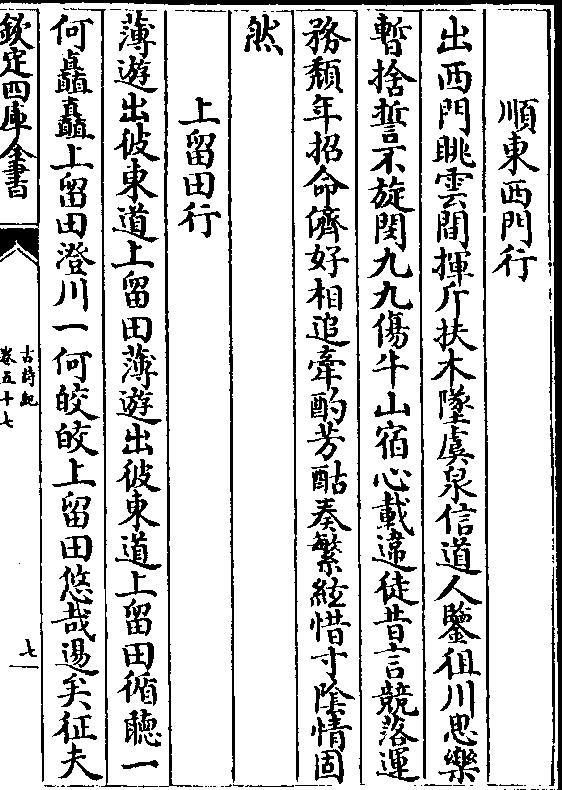 順東西門行
出西門眺雲間揮斤扶木墜虞泉信道人鑒徂川思樂
暫捨誓不旋閔九九傷牛山宿心載違徒昔言競落運
務頽年招命儕好相追牽酌芳酤奏繁絃惜寸陰情固
然
上留田行
薄遊出彼東道上留田薄遊出彼東道上留田循聽一
何矗矗上留田澄川一何皎皎上留田悠哉逷矣征夫
欽定四庫全書
古詩紀
卷五十七
七